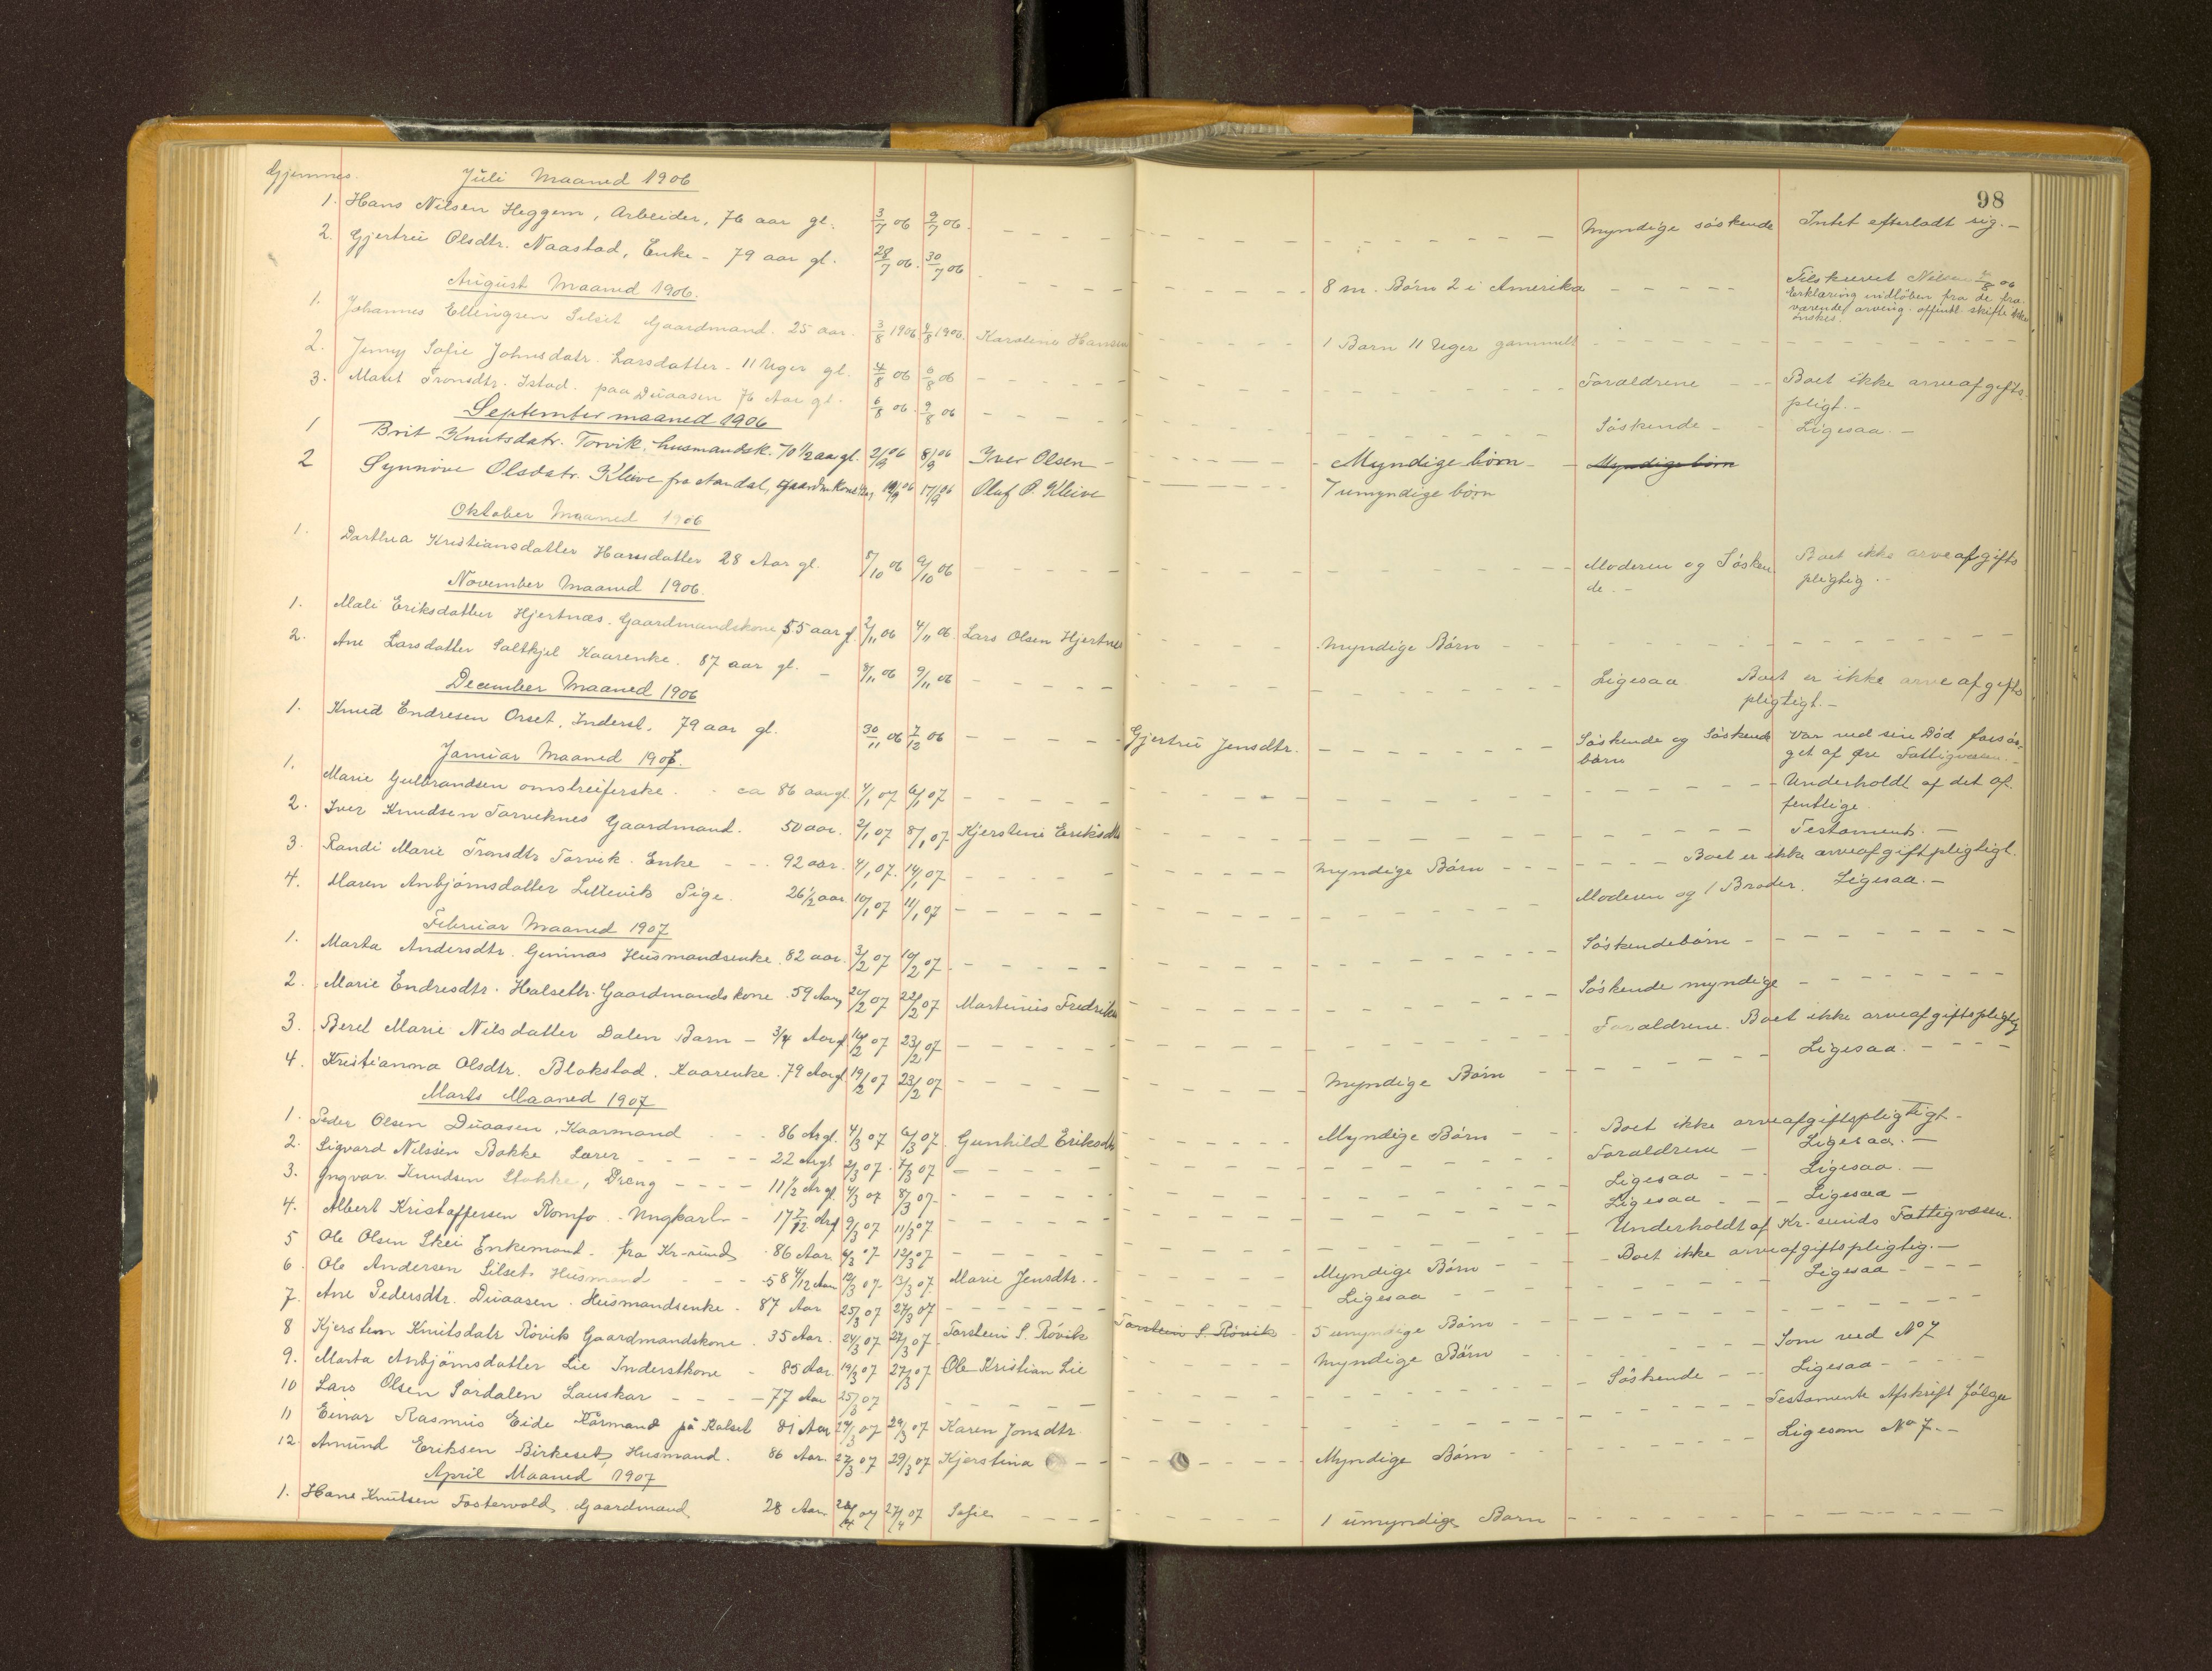 98
Gjemnes. Juli Maaned 1906
1. Hans Nilsen Heggem, Arbeider, 76 aar gl. 3/7 06 9/7 06. Myndige söskende Intet efterladt sig. -
2. Gjertrü Olsdtr. Naastad, Enke - 79 aar gl. 28/7 06. 30/7 06 8 m. Börn 2 i Amerika Tilskrevet Nilsen /8 06
Erklæring indlöben fra de fra-
værende arving. offentl. skifte ikke
önskes.
August Maaned 1906.
1. Johannes Ellingsen Silset Gaardmand. 25 aar. 3/8 1906 8/8 1906 Karoline Hansen 1 Barn 11 Uger gammelt
2. Jenny Sofie Johnsdatr. Larsdatter - 11 Uger gl. 4/8 06 6/8 06 Forældrene Boet ikke arveafgifts-
pligt. -
3. Marit Tronsdtr. Istad. paa Düaasen 76 Aar gl. 6/8 06. 9/8 06 Söskende - Ligesaa. -
September maaned 1906
1 Brit Knutsdatr. Torvik, husmandsk. 70 1/2 aar gl. 2/9 06 8/9 06 Iver Olsen - Myndige börn - Myndige börn
2 Synnöve Olsdatr. Kleive fra Aandal, Gaardm.kone 14/9 06 17/9 06 Oluf O. Kleive 7 umyndige börn
Oktober Maaned 1906
1. Dorthea Kristiansdatter Hansdatter 28 Aar gl. 8/10 06 9/10 06 Moderen og Sösken-
de. - Boet ikke arveafgifts
pligtig. -
November Maaned 1906.
1. Mali Eriksdatter Hjertnæs. Gaardmandskone 55 aar gl. 2/11 06 4/11 06. Lars Olsen Hjertnes Myndige Börn
2. Ane Larsdatter Saltkjel Kaarenke. 87 aar gl. - 8/11 06 9/11 06 Ligesaa Boet er ikke arveafgifts
pligtigt. -
December Maaned 1906
1. Knud Endresen Orset, Inderst, 79 aar gl. 30/11 06 7/12 06 Gjertrü Jensdtr. Söskende og Söskende
börn Var ved sin Död forsör-
get af Öre Fattigvæsen. -
Januar Maaned 1907.
1. Marie Gulbrandsen omstreiferske. - ca 86 aar gl. 4/1 07 6/1 07 Underholdt af det of-
fentlige
2. Iver Knudsen Torviknes Gaardmand. 50 aar. 2/1 07 8/1 07 Kjerstine Eriksdtr Testament. -
3. Randi Marie Tronsdtr Torvik. Enke - - - 92 aar. 4/1 07. 14/1 07 Myndige Börn - - - Boet er ikke arveafgiftpligtigt.
4. Maren Anbjörnsdatter Lillevik Pige. 26 1/2 aar 10/1 07 11/1 07 Moderen og 1 Broder. Ligesaa. -
Februar Maaned 1907
1. Marta Andersdtr. Gimnæs Husmandsenke. 82 aar. 3/2 07 10/2 07 Söskendebörn -
2. Marie Endresdtr. Halseth. Gaardmandskone. 59 Aar 20/2 07 22/2 07 Martinus Fredriksen Söskende myndige
3. Beret Marie Nilsdatter Dalen Barn - 3/4 Aar gl 16/2 07 23/2 07 Forældrene. Boet ikke arveafgiftspligtig
4. Kristianna Olsdtr. Blakstad. Kaarenke. 79 Aar gl. 19/2 07 23/2 07 Myndige Börn Ligesaa.
Marts Maaned 1907
1. Peder Olsen Düaasen, Kaarmand - - - 86 Ar gl. 4/3 07 6/3 07. Gunhild Eriksdtr Myndige Börn Boet ikke arveafgiftspligtigt -
2. Sigvard Nilssen Bakke Lærer - - - - - 22 Ar gl 2/3 07. 7/3 07 Forældrene - Ligesaa. -
3. Yngvar Knudsen Stokke, Dreng - - - - 11 1/2 Ar gl 4/3 07 8/3 07 Ligesaa - - Ligesaa. -
4. Albert Kristoffersen Romfo. - Ungkarl - - 17 7/12 Ar gl 9/3 07 11/3 07 Ligesaa - - - Ligesaa -
5 Ole Olsen Skei Enkemand - fra Kr-sund. 86 Aar 6/3 07 12/3 07 Underholdt af Kr. sunds Fattigvæsen.
6. Ole Andersen Silset. Husmand - - - 58 4/12 Aar 12/3 07. 13/3 07. Marie Jensdtr. - Myndige Börn - Boet ikke arveafgiftspligtig. -
7. Ane Pedersdtr. Düaasen. Husmandsenke. 87 Aar 25/3 07 27/3 07 Ligesaa Ligesaa - - -
8 Kjersten Knutsdatr Rövik Gaardmandskone. 35 Aar. 24/3 07 27/3 07. Torstein S. Rövik Torstein S. Rövik 5 umyndige Börn
9. Marta Anbjörnsdatter Lie Inderstkone - 85 Aar. 19/3 07 27/3 07 Ole Kristian Lie Myndige Börn Som ved No 7
10 Lars Olsen Sördalen Lauskar - - - - 77 Aar 25/3 07 Söskende - - Ligesaa -
11 Einar Rasmus Eide Kårmand på Kalset 81 Aar 24/3 07 29/3 07 Karen Jonsdtr. Testamente Afskrift fölger
12. Amund Eriksen Birkeset, Husmand. 86 Aar. 27/3 07 29/3 07 Kjerstina Myndige Börn Ligesom No 7. -
April Maaned 1907
1. Hans Knutsen Fostervold. Gaardmand 28 Aar 27/4 07 Sofie 1 umyndige Barn